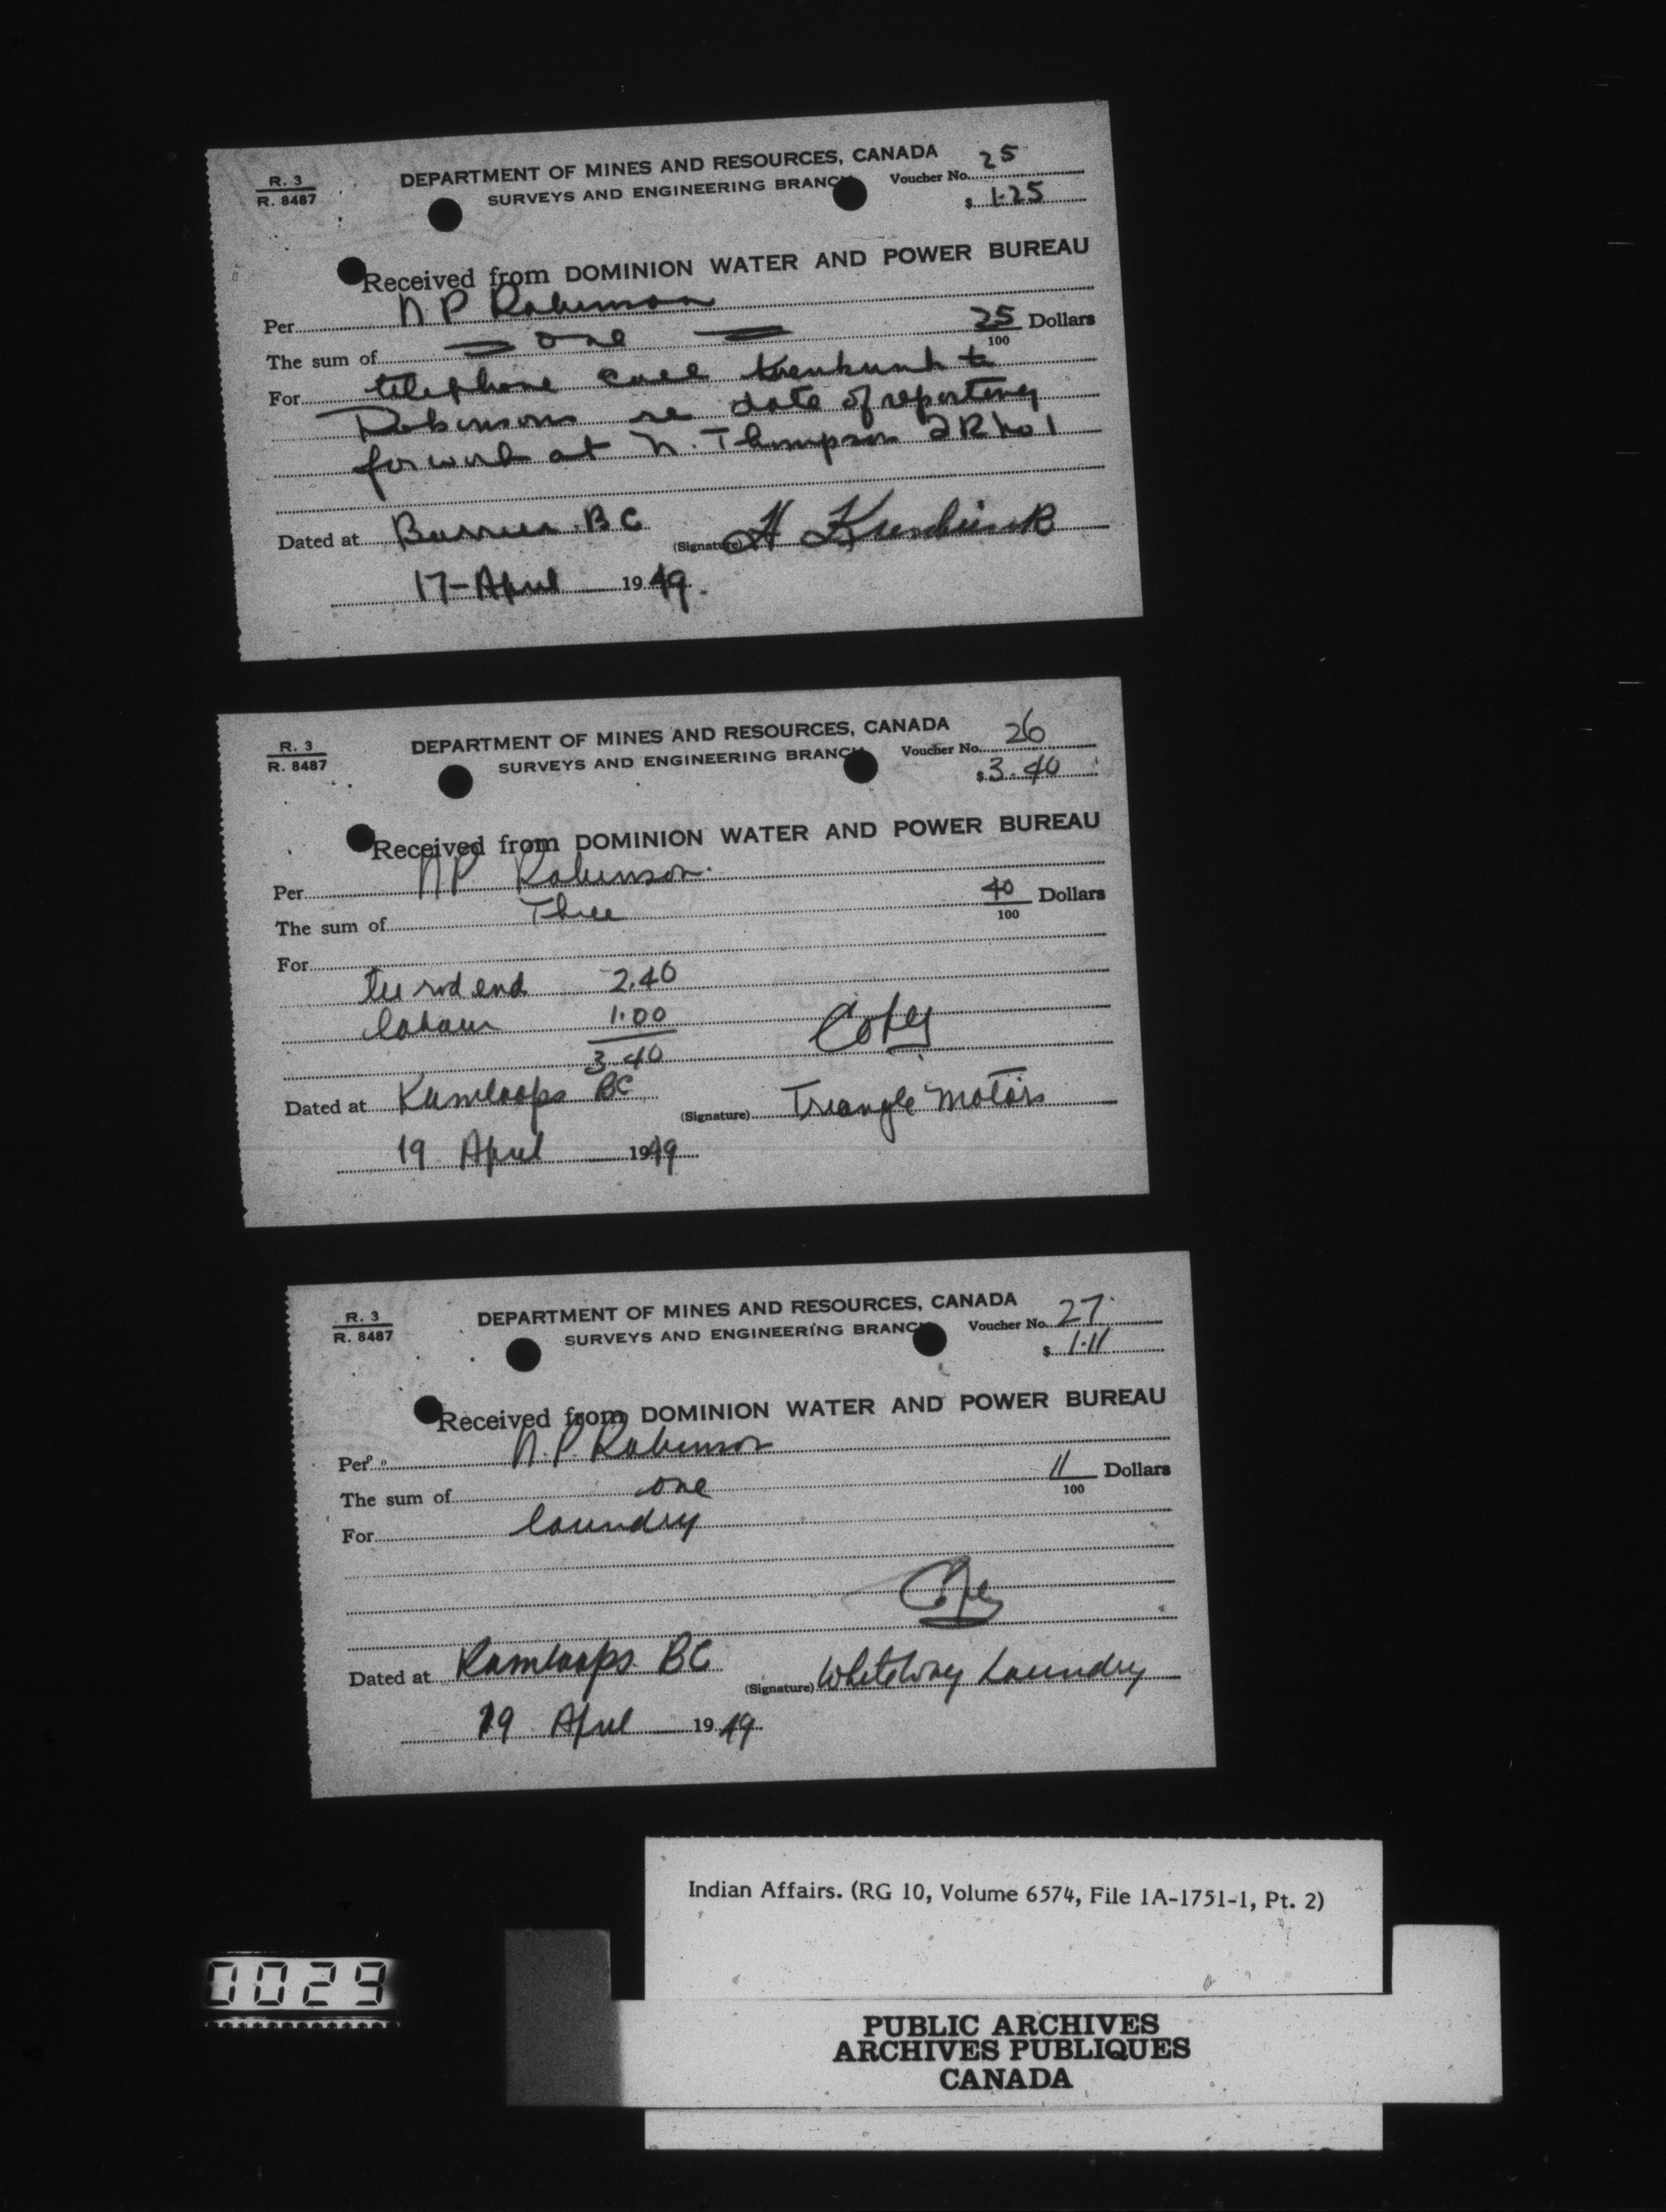 R. 3
R. 8487
DEPARTMENT OF MINES AND RESOURCES, CANADA
SURVEYS AND ENGINEERING BRANCH
Voucher No. 25
$ 1.25
Received from DOMINION WATER AND POWER BUREAU
Per N P Robinson
The sum of one 25/100 Dollars
For telephone call to
Robinson re date of reporting
for work at N. Thompson I R No 1
Dated at Barriere B C
(Signature) H
17 - April 1949.
R. 3
R. 8487
DEPARTMENT OF MINES AND RESOURCES, CANADA
SURVEYS AND ENGINEERING BRANCH
Voucher No. 26
$ 3.40
Received from DOMINION WATER AND POWER BUREAU
Per N P Robinson.
The sum of Three 40/100 Dollars
For
tie rod end 2.40
labour 1.00
3.40
Copy
Dated at Kamloops BC
(Signature) Triangle Motors
19 April 1949
R. 3
R. 8487
DEPARTMENT OF MINES AND RESOURCES, CANADA
SURVEYS AND ENGINEERING BRANCH
Voucher No. 27
$ 1.11
Received from DOMINION WATER AND POWER BUREAU
Per N. P. Robinson
The sum of one 11/100 Dollars
For laundry
Copy
Dated at Kamloops BC
(Signature) Whiteway Laundry
19 April 1949
Indian Affairs. (RG 10, Volume 6574, File 1A-1751-1, Pt. 2)
0029
PUBLIC ARCHIVES
ARCHIVES PUBLIQUES
CANADA